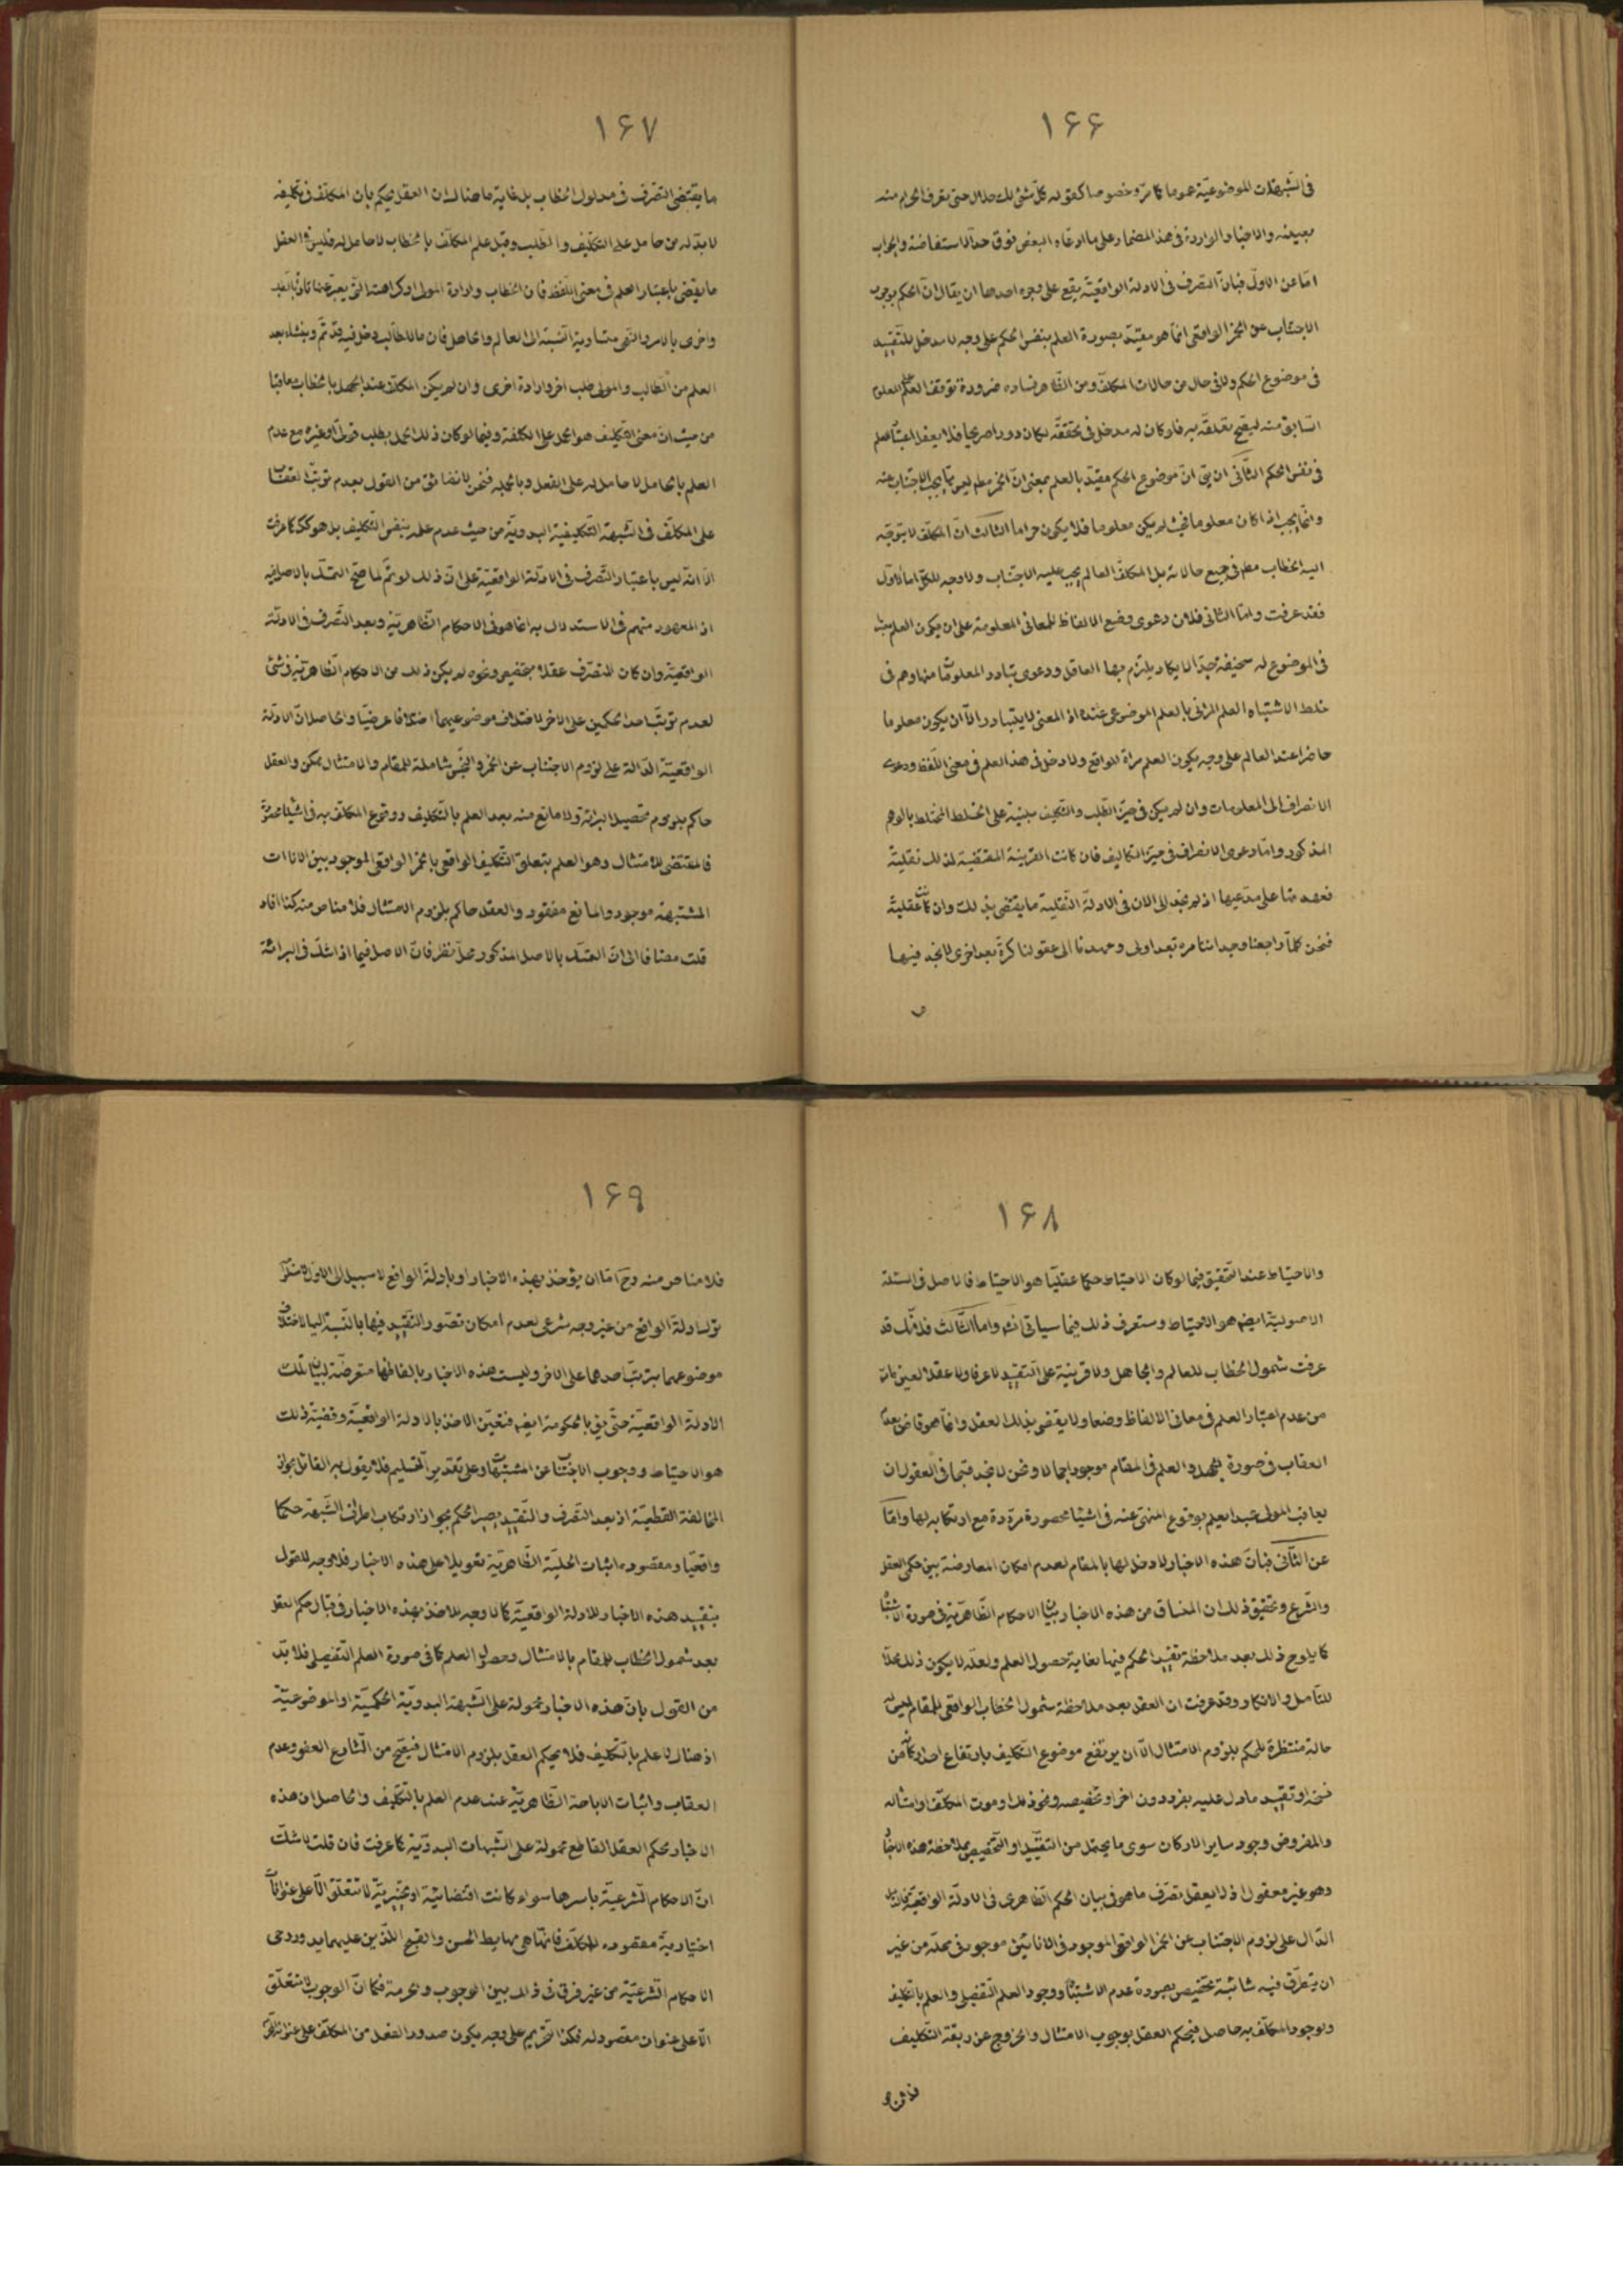 ١۶۶
في الشبهات الموضوعيّة عموما كما مرّ وخصوصا كقوله كلّ شئ لك حلال حتى تعرف الحرام منه
بعينه والاخبار الواردة في هذا المضمار وعلى ما ادعاه البعض فوق حدّ الاستفاضة والجواب
امّا عن الاوّل فبانّ التصرف في الادلة الواقعيّة يقع على وجوه احدها ان يقال انّ الحكم بوجوب
الاجتناب عن الخمر الواقعي انّما هو مقيّد بصورة العلم بنفس الحكم على وجه لا مدخل للتّقييد
في موضوع الحكم ولا في حال من حالات المكلّف ومن الظّاهر فساده ضرورة توقف العلم على المعلوم
السّابق منه ليصحّ تعلّقه به فلو كان له مدخل في تحققّه لكان دورا صريحا فلا يعقل اعتبار العلم
في نفس الحكم الثّاني ان يق انّ موضوع الحكم مقيّد بالعلم بمعنى انّ الخمر مط ليس ممّا يجب الاجتناب عنه
وانّما يجب اذا كان معلوما فحيث لم يكن معلوما فلا يكون حراما الثالث انّ المكلّف لا يتوجّه
اليه الخطاب مط في جميع حالاته بل المكلف العالم يجب عليه الاجتناب ولا وجه للكلّ امّا الاوّل
فقد عرفت وامّا الثاني فلان دعوى وضع الالفاظ للمعاني المعلومة على ان يكون العلم
في الموضوع له سخيفة جدّا لا يكاد يلتزم بها العاقل ودعوى تبادر المعلومات منها وهم في
خلط لاشتباه العلم المرآتي بالعلم الموضوعي عنده اذ المعنى لا يتبادر الّا ان يكون معلوما
حاضرا عند العالم على وجه يكون العلم مرآة للواقع ولا دخل في هذا العلم في معنى اللّفظ ودعوى
الانصراف الى المعلومات وان لم يكن في حيّز الطّلب والتكليف مبنية على الخلط المختلط بالوهم
المذكور وامّا دعوى الانصراف في حيّز التكاليف فان كانت القرينة المقتضية لذلك نقليّة
فعهدتها على مدّعيها اذ لم نجد الى الان في الادلة النّقلية ما يقتضي بذلك وان كانت عقليّة
فنحن كلّما راجعنا وجداننا مرّة بعد اولى وعهدنا الى عقولنا كرّة بعد اخرى لا نجد فيها
١۶٧
ما يقتضي التصرّف في مدلول الخطاب بل غاية ما هنالك ان العقل يحكم بان المكلّف في تكليفه
لا بدّ له من حامل على التكليف والطّلب وقبل علم المكلّف بالخطاب لا حامل له فليس في العقل
ما يقضي باعتبار العلم في معنى اللّفظ فان الخطاب وارادة المولى او كراهته الّتي يعبّر عنها تارة بالقيد
واخرى بالامر والنّهي متساوية النّسبة الى العالم والجاهل فان ما للطّالب دخل فيه قد تمّ وينشاء بعد
العلم من الطّالب والمولى طلب اخر وارادة اخرى وان لم يكن المكلّف عند الجهل بالخطاب معاقبا
من حيث انّ معنى التّكليف هو الحمل على الكلفة وفيما لو كان ذلك الحمل بطلب قولى او غيره مع عدم
العلم بالحامل لا حامل له على الفعل وبالجملة فنحن لا نتحاشى من القول بعدم ترتّب العقاب
على المكلّف في الشّبهة التّكليفيّة البدويّة من حيث عدم علمه بنفس التّكليف بل هو كك كما عرفت
الّا انّه ليس باعتبار التّصرف في الادلة الواقعيّة على انّ ذلك لو تمّ لما صحّ التمسّك بالاصل فيه
اذ المعهود منهم في الاستدلال به انّما هو في الاحكام الظّاهريّة وبعد التّصرف في الادلّة
الواقعيّة وان كان التصرّف عقلا بتخصيص ونحوه لم يكن ذلك من الاحكام الظّاهريّة في شئ
لعدم ترتّب احد الحكمين على الاخر لاختلاف موضوعيهما اختلافا عرضيّا والحاصل انّ الادلّة
الواقعيّة الدّالة على لزوم الاجتناب عن الخمر والنّجس شاملة للمقام والامتثال ممكن والعقل
حاكم بلزوم تحصيل البرائة ولا مانع منه بعد العلم بالتّكليف ووقوع المكلّف به في اشياء محصورة
فالمقتضي للامتثال وهو العلم بتعلّق التّكليف الواقعي بالخمر الواقعي الموجود بين الاناءات
المشتبهة موجود والمانع مفقود والعقل حاكم بلزوم الامتثال فلا مناص منه كذا افاد
قلت مضافا الى انّ التمسّك بالاصل المذكور محلّ نظر فانّ الاصل فيما اذا شكّ في البرائة
١۶٨
والاحتياط عند التّحقيق فيما لو كان الاحتياط حكما عقليّا هو الاحتياط فالاصل في المسئلة
الاصولية ايضا هو الاحتياط وستعرف ذلك فيما سياتي انشا وامّا الثّالث فلانّك قد
عرفت شمول الخطاب للعالم والجاهل ولا قرينة على التّقييد لا عرفا ولا عقلا لعين ما مرّ
من عدم اعتبار العلم في معاني الالفاظ وضعا ولا يقضي بذلك العقل وانّما هو قاض بعدم
العقاب في صورة الجهل والعلم في المقام موجود اجمالا ونحن لا نجد قبحا في العقول ان
يعاقب المولى عبدا يعلم بوقوع المنهيّ عنه في اشياء محصورة مردّدة مع ارتكابه لها وامّا
عن الثّاني فبانّ هذه الاخبار لا دخل لها بالمقام لعدم امكان المعارضة بين حكمي العقل
والشّرع وتحقيق ذلك ان المنساق من هذه الاخبار بيان الاحكام الظّاهريّة في صورة الاشتباه
كما يلوح ذلك بعد ملاحظة تقييد الحكم فيها بغاية حصول العلم ولعلّه لا يكون ذلك محلّا
للتّأمل والانكار وقد عرفت ان العقل بعد ملاحظة شمول الخطاب الواقعي للمقام ليس له
حالة منتظرة للحكم بلزوم الامتثال الّا ان يرتفع موضوع التّكليف بارتفاع احد اركانه من
نسخه او تقييد ما دل عليه بفرد دون اخر او تخصيصه ونحو ذلك او موت المكلّف او امثاله
والمفروض وجود ساير الاركان سوى ما يحتمل من التقييد او التّخصيص بملاحظة هذه الاخبار
وهو غير معقول اذ لا يعقل تصرّف ما هو في بيان الحكم الظّاهري في الادلّة الواقعيّة فالدليل
الدّال على لزوم الاجتناب عن الخمر الواقعي الموجود في الانائين موجود في محلّه من غير
ان يتطرّق فيه شائبة تخصيص بصورة عدم الاشتباه ووجود العلم التّفصيلي والعلم بالتكليف
وبوجود المكلّف به حاصل فيحكم العقل بوجوب الامتثال والخروج عن ربقة التّكليف
١۶٩
فلا مناص منه وح امّا ان يؤخذ بهذه الاخبار او بادلّة الواقع لا سبيل الى الاوّل لاستلزامه
ترك ادلّة الواقع من غير وجه شرعي لعدم امكان تصوّر التّقييد فيها بالنّسبة اليها لاختلاف
موضوعهما بترتّب احدهما على الاخر وليست هذه الاخبار بالفاظها متعرضّة لبيان تلك
الادلّة الواقعيّة حتّى يق بالحكومة ايضا فتعيّن الاخذ بالادلة الواقعيّة وقضيّة ذلك
هو الاحتياط ووجوب الاجتناب عن المشتبهات وعلى تقدير التّسليم فلا يقول به القائل بجواز
المخالفة القطعيّة اذ بعد التّصرف والتّقييد يصير الحكم بجواز ارتكاب اطراف الشّبهة حكما
واقعيّا ومقصوده اثبات الحليّة الظّاهريّة تعويلا على هذه الاخبار فلا وجه للقول
بتقييد هذه الاخبار للادلة الواقعيّة كما لا وجه للاخذ بهذه الاخبار في قبال حكم العقل
بعد شمول الخطاب للمقام بالامتثال وحصول العلم كما في صورة العلم التّفصيلي فلا بدّ
من القول بانّ هذه الاخبار محمولة على الشّبهة البدويّة الحكميّة او الموضوعيّة
اذ هناك لا علم بالتّكليف فلا يحكم العقل بلزوم الامتثال فيصحّ من الشّارع العفو وعدم
العقاب واثبات الاباحة الظّاهريّة عند عدم العلم بالتّكليف والحاصل ان هذه
الاخبار بحكم العقل القاطع محمولة على الشّبهات البدويّة كما عرفت فان قلت لا شكّ
انّ الاحكام الشّرعيّة باسرها سواء كانت اقتضائيّة او تخييريّة لا تتعلّق الّا على عنوانات
اختيارية مقصوده للمكلّف فانّها هي مهابط الحسن والقبح اللّذين عليهما يدور رحى
الاحكام الشّرعيّة من غير فرق في ذلك بين الوجوب والحرمة فكما انّ الوجوب لا تتعلّق
الّا على عنوان مقصود له فكذا التّحريم على وجه يكون صدور الفعل من المكلّف على عنوان